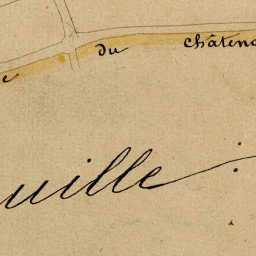 e du châteno
uille